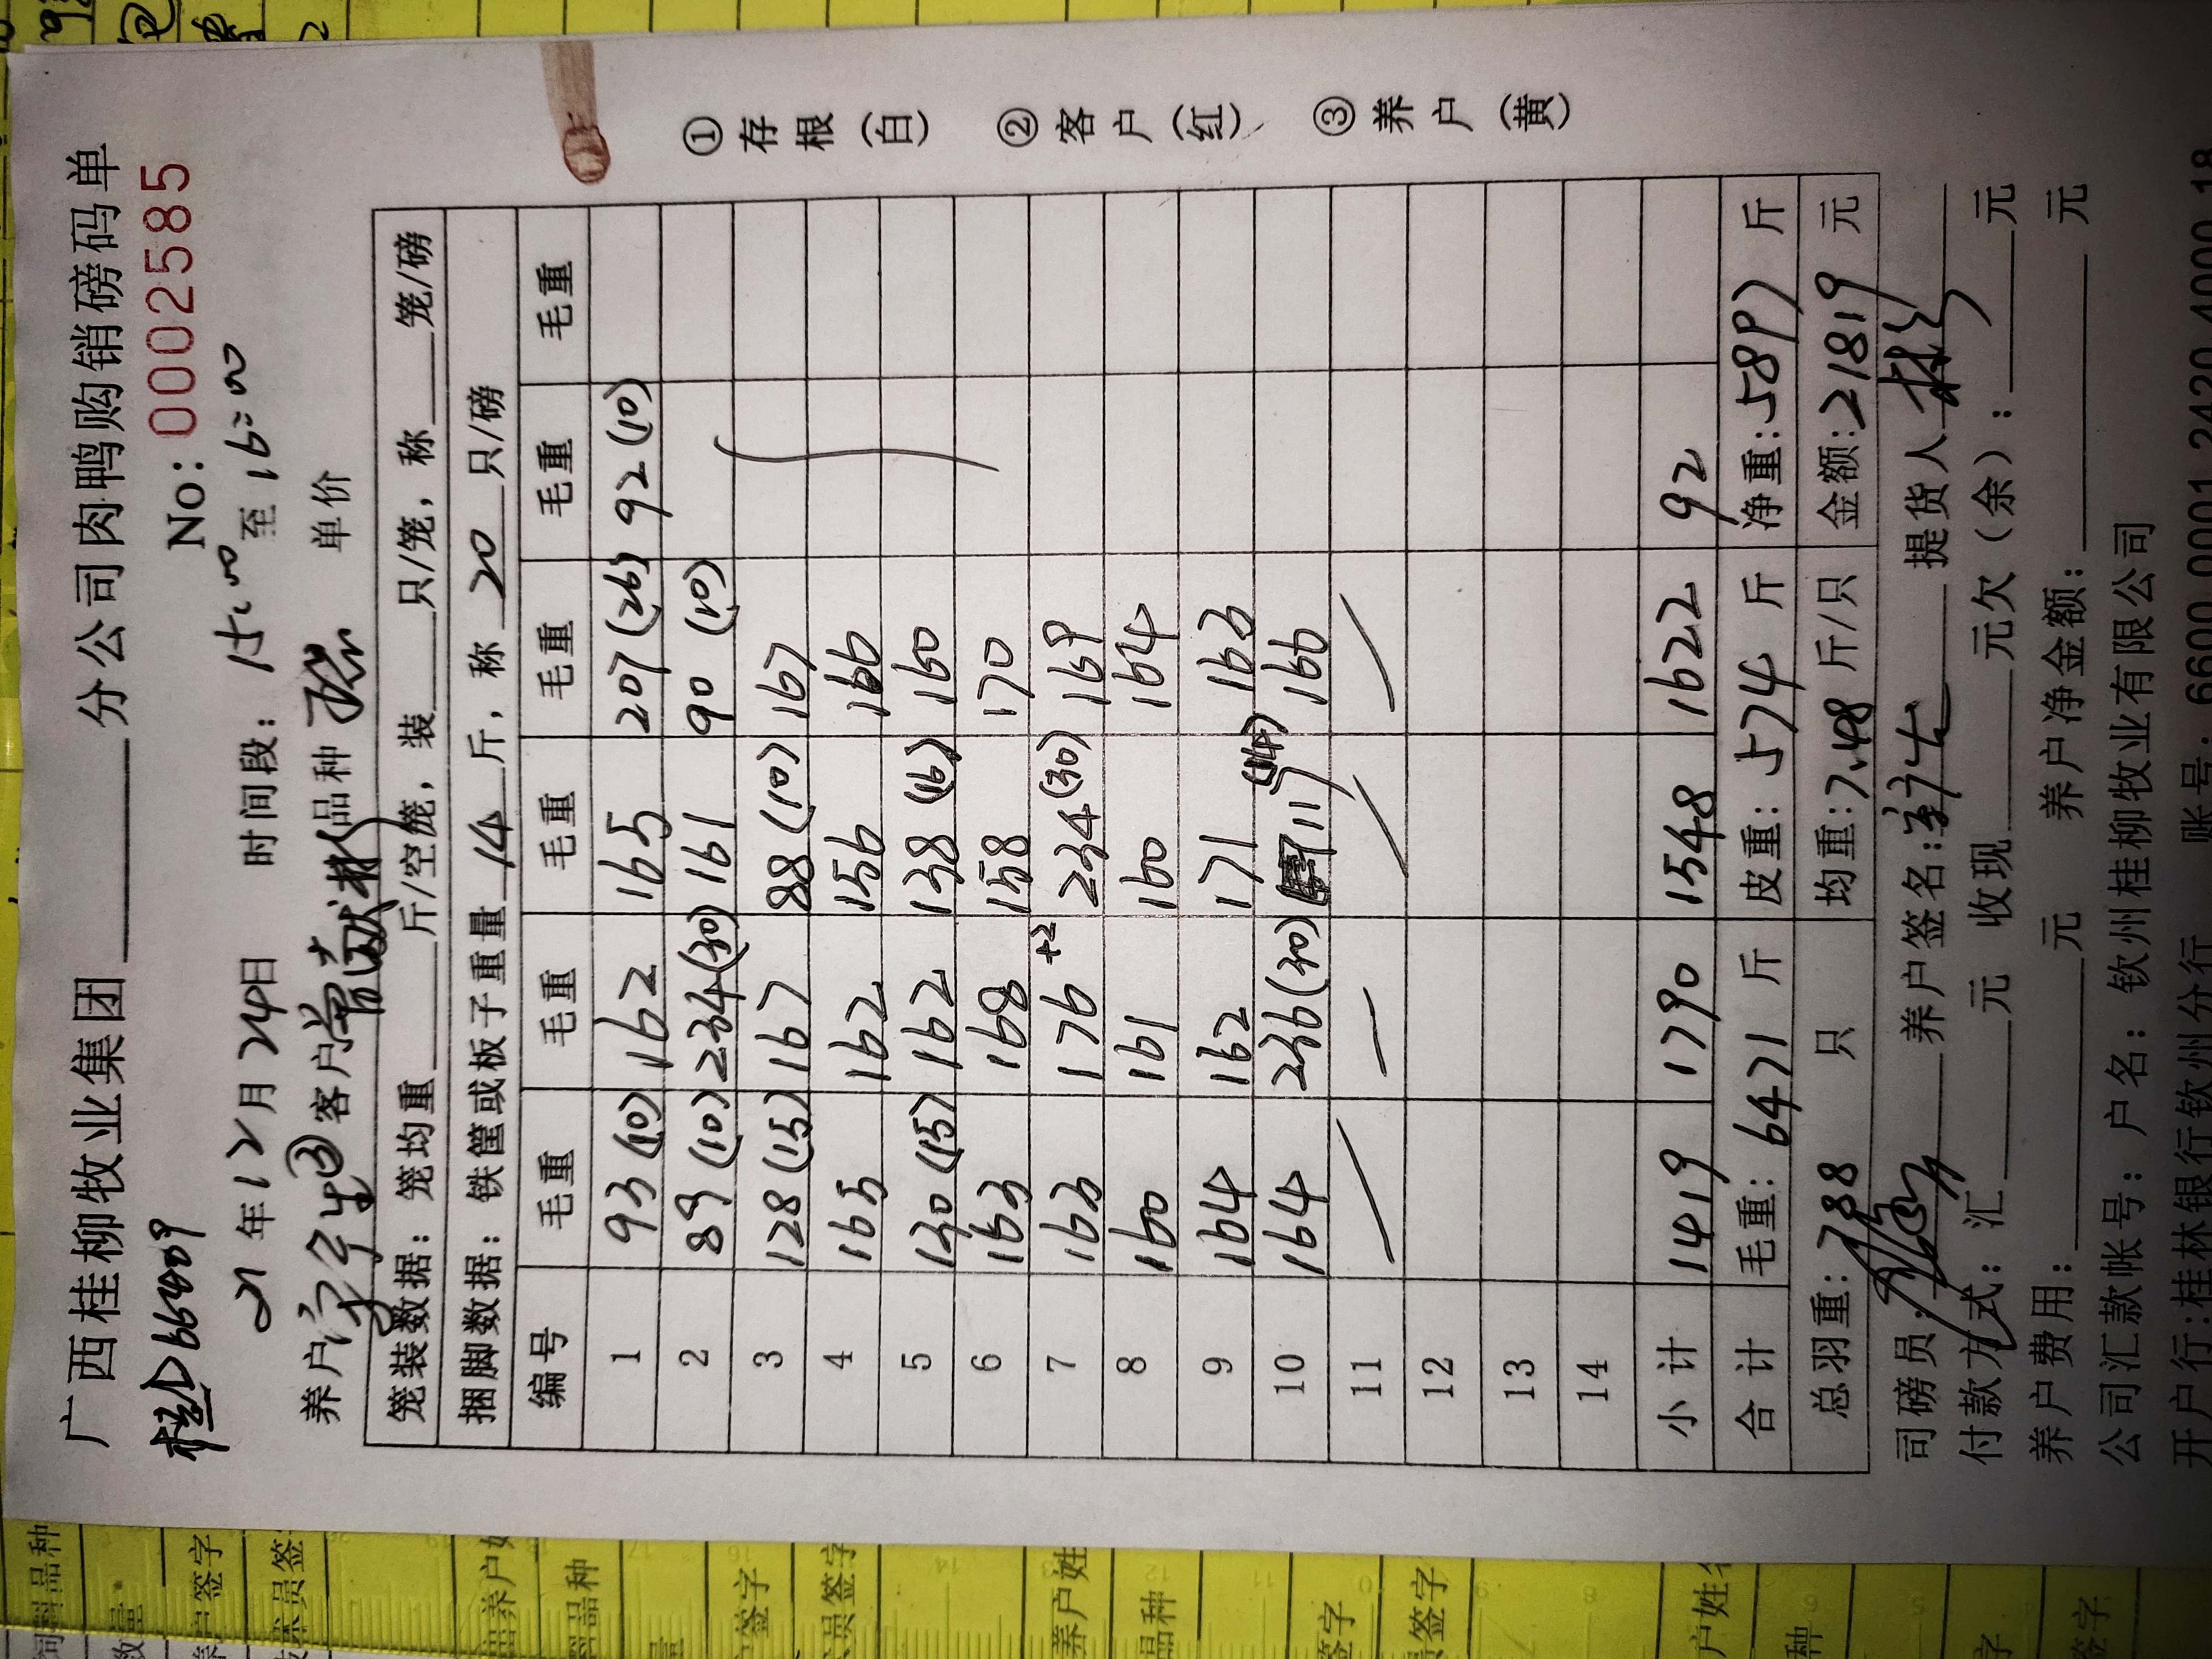 广西桂柳牧业集团______分公司肉鸭购销磅码单
桂D66809 No:0002585
21年12月24日 时间段:15:00至16:00
养户 ③客户曾献林品种 单价
笼装数据:笼均重____斤/空笼,装____只/笼,称____笼/磅
捆脚数据:铁筐或板子重量14斤,称20只/磅
编号 毛重 毛重 毛重 毛重 毛重 毛重
1 93(10) 162 165 207(26) 92(10)
2 89(10) 234(30) 161 90(10)
3 128(15) 167 88(10) 167
4 165 162 156 166
5 130(15) 162 138(16) 160
6 163 168 158 170
7 163 176+2 234(30) 169
8 160 161 160 164
9 164 162 171 163
10 164 236(30) 117(14) 166
11
12
13
14
小计 1419 1790 1548 1622 92
合计 毛重:6471斤 皮重:574斤 净重:5897斤
总羽重:788只 均重:7.48斤/只 金额:21819元
司磅员: 养户签名: 提货人
付款方式:汇____元 收现____元欠(余):____元
养户费用:____元 养户净金额:____元
公司汇款帐号:户名:钦州桂柳牧业有限公司
开户行:桂林银行钦州分行 账号:6600 0001 2420 4000 18
①存根(白) ②客户(红) ③养户(黄)